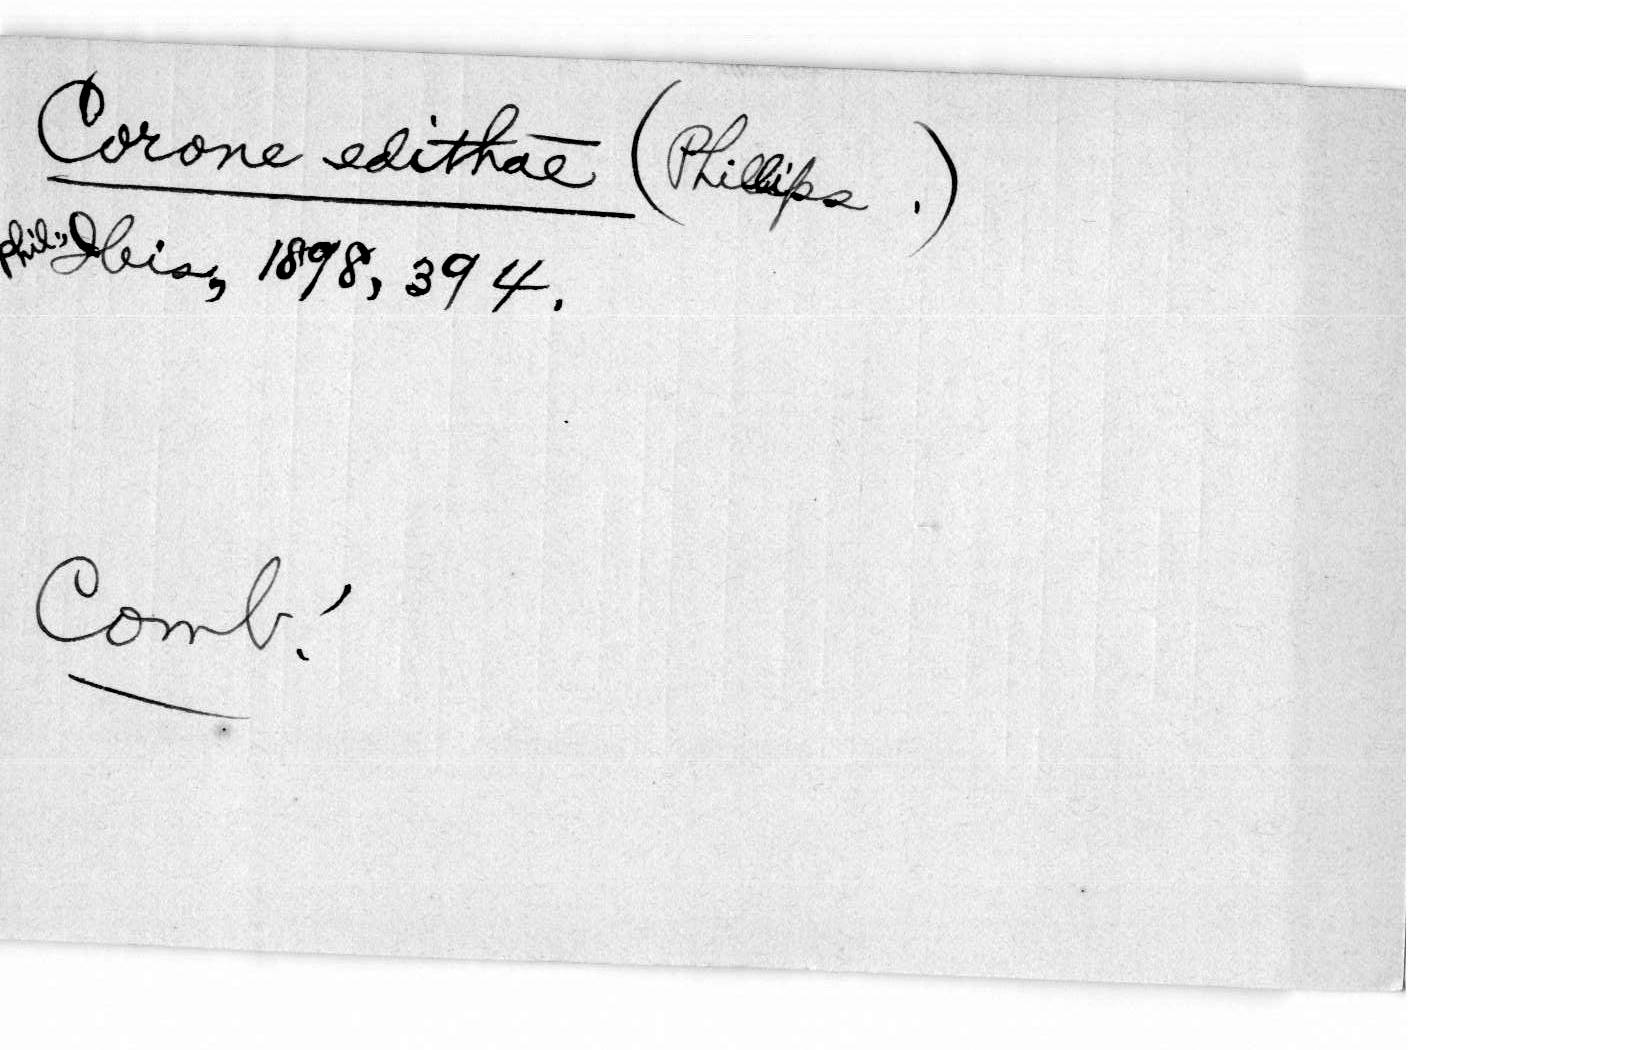 Corone edithae (Phillips.)
Phil., Ibis, 1898, 394.
Comb!